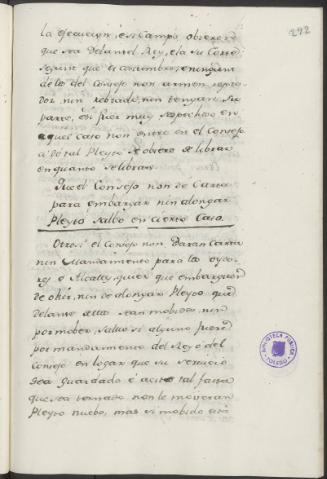 292
la execucion, é si Campo obiere de
que sea delante el Rey, é la su Corte
segunt que es costumbre, é ninguno
delos del Consejo non
dor, nin rebocado, nin tengan
parte, é si fuer muy sospechoso en
aquel caso non entre en el Consejo
a do tal Pleyto se obiere de librar
en quanto se librare.
Que el Consejo non dé Carta
para embargar nin alongar
Pleyto salbo en cierto Caso.
Otro si el Consejo non daran Carta
nin Mandamiento para los oydo-
res é Alcalls, quier que embarguen
de ohir, nin de alongar Pleyto que
delante ellos sean mobidos, nin
por mober, salbo si alguno fuere
por mandamiento del Rey ó del
Consejo en logar que su servicio
sea guardado é a este tal fasta
que sea tornado non le moveran
Pleyto nuebo, mas si mobido está
BIBLIOTECA PUBLICA
TOLEDO